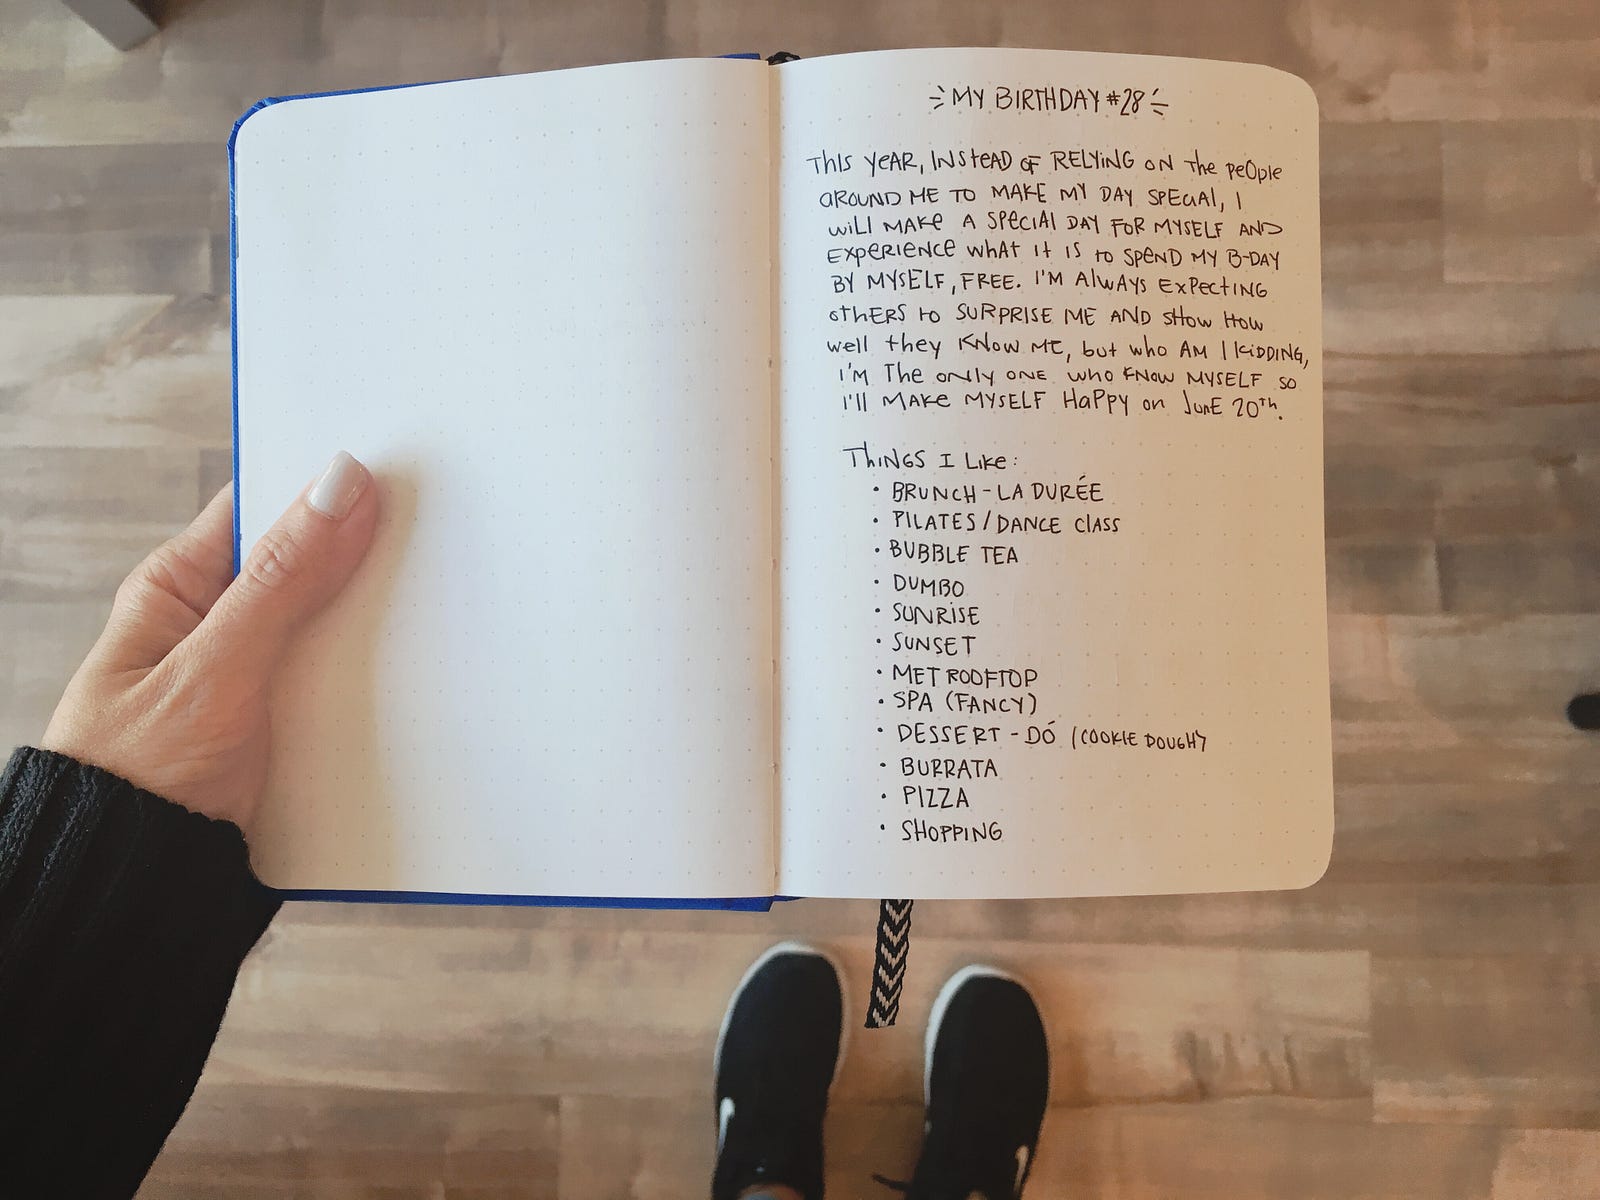 MY BIRTHDAY #28
THIS YEAR, INSTEAD OF RELYING ON THE PEOPLE
AROUND ME TO MAKE MY DAY SPECIAL, I
WILL MAKE A SPECIAL DAY FOR MYSELF AND
EXPERIENCE WHAT IT IS TO SPEND MY B-DAY
BY MYSELF, FREE. I'M ALWAYS EXPECTING
OTHERS TO SURPRISE ME AND SHOW HOW
WELL THEY KNOW ME, BUT WHO AM I KIDDING,
I'M THE ONLY ONE WHO KNOW MYSELF SO
I'LL MAKE MYSELF HAPPY ON JUNE 20TH.
THINGS I LIKE:
• BRUNCH - LA DURÉE
• PILATES / DANCE CLASS
• BUBBLE TEA
• DUMBO
• SUNRISE
• SUNSET
• MET ROOFTOP
• SPA (FANCY)
• DESSERT - DÓ (COOKIE DOUGH)
• BURRATA
• PIZZA
• SHOPPING